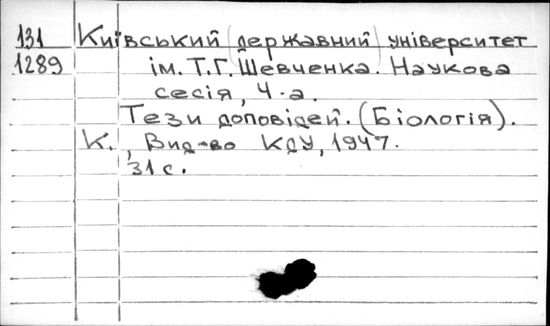 131 Київський державний університет
1289 ім. Т.Г. Шевченка. Наукова
сесія, 4-а.
Тези доповідей. (Біологія).
К., Вид-во КДУ, 1947.
31 с.